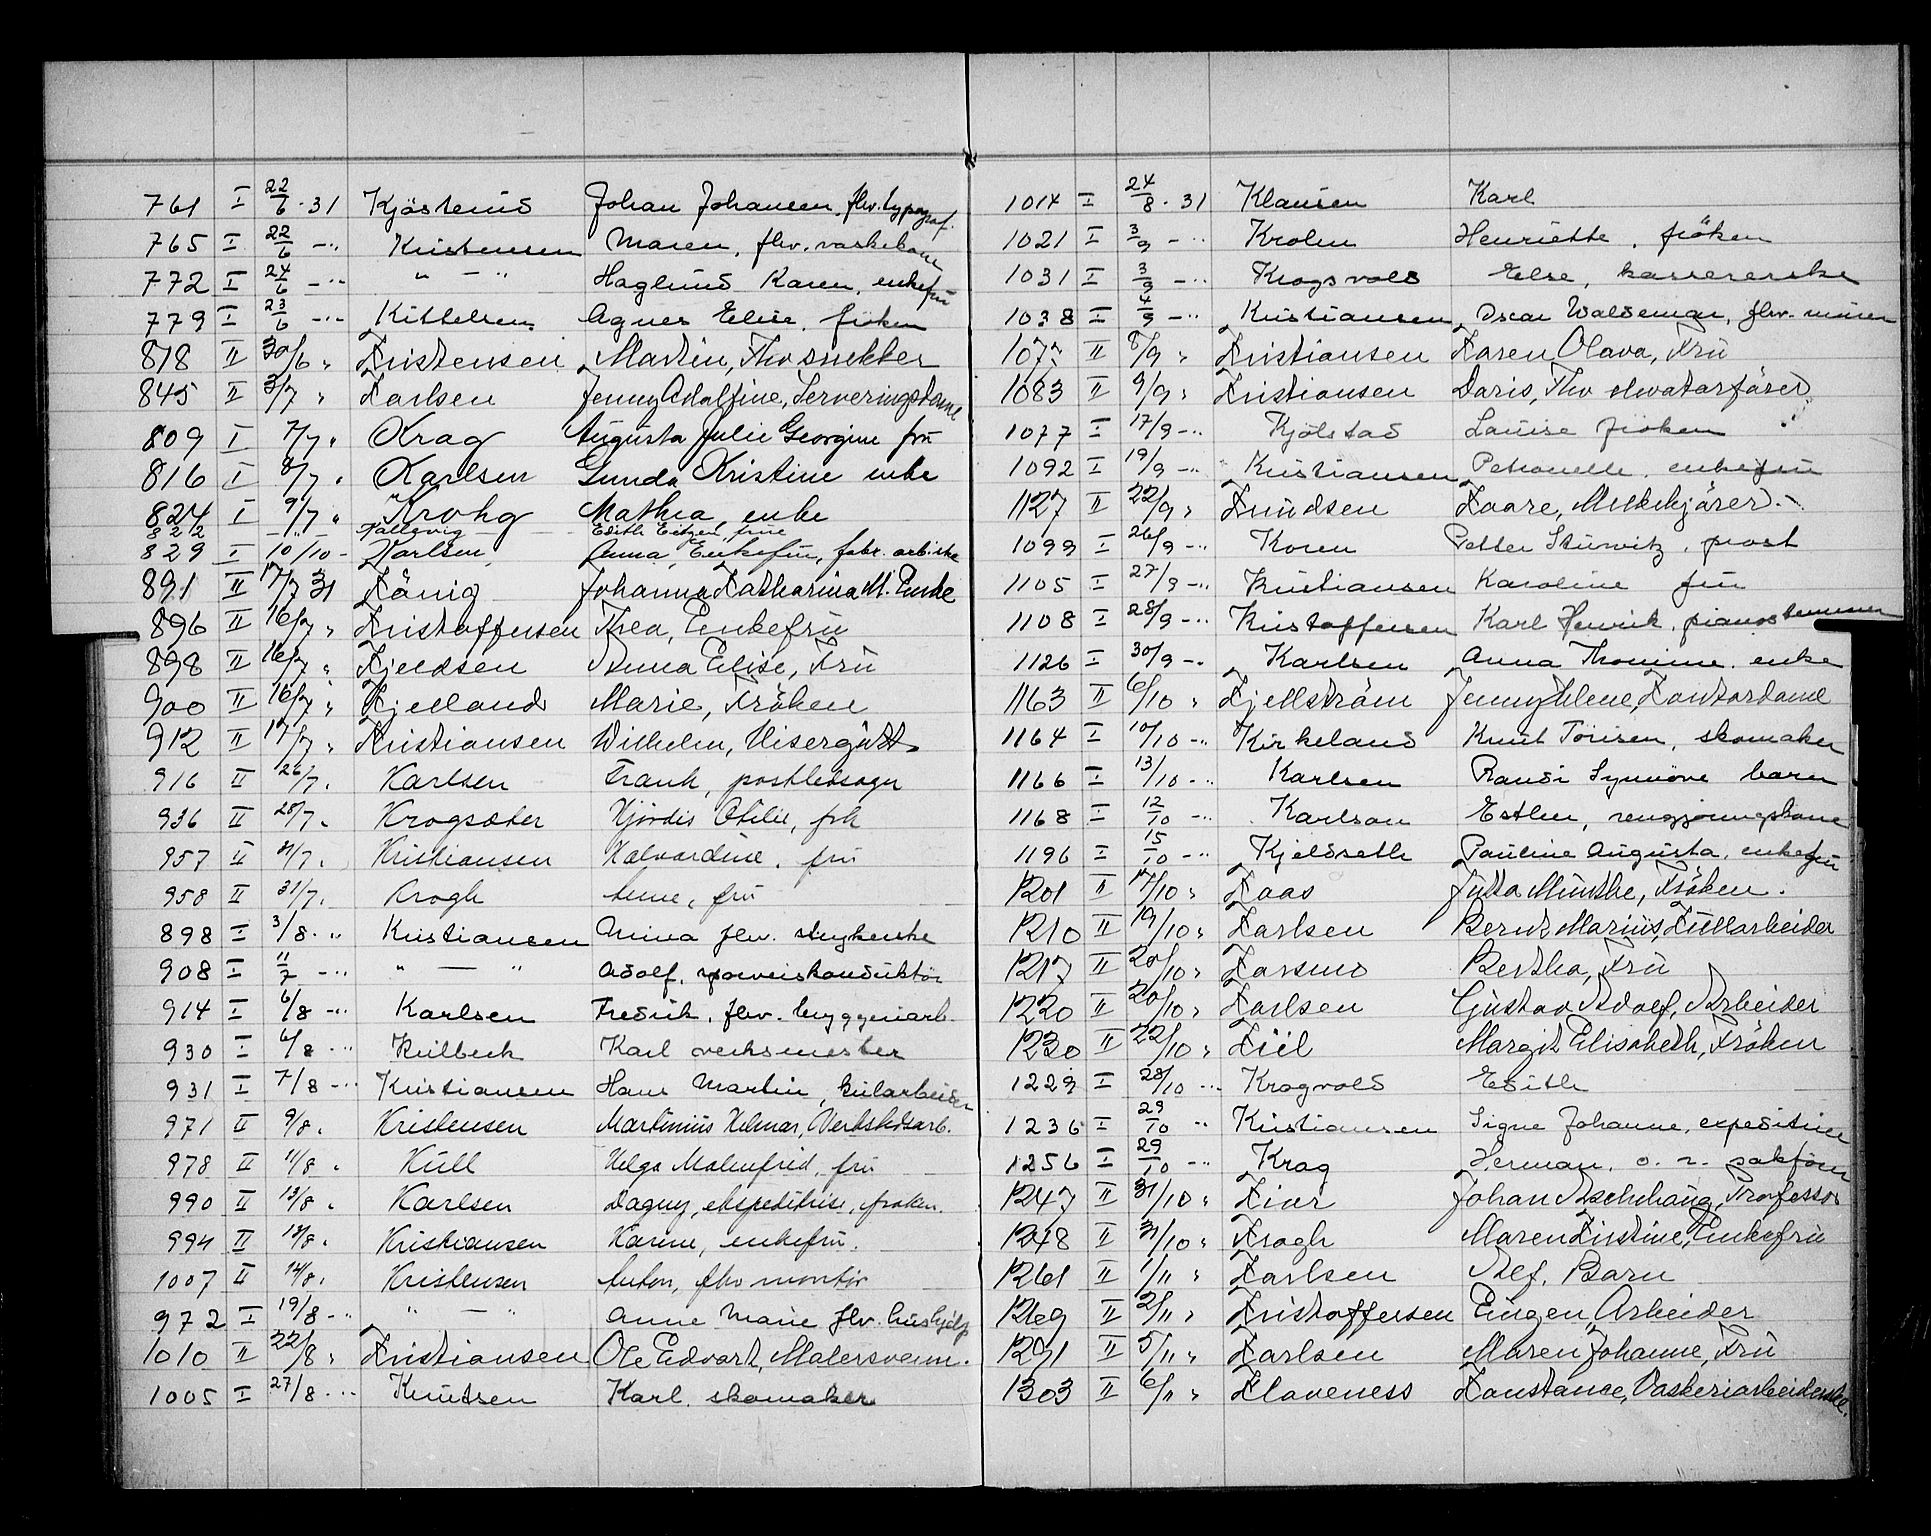 761 I 22/6 - 31 Kjösterud Johan Johansen, fhv. typograf.
765 I 22/6 -" Kristensen Maren, fhv. vaskekone
772 I 24/6 -" " - " Haglund Karen, enkefru
779 I 23/6 -" Kittelsen Agnes Elise, fröken
818 II 30/6 " Kristensen Martin, Fhv snekker
845 II 3/7 " Karlsen Jenny Adolfine, Serveringsdame
809 I 7/7 " Krag Augusta Julie Georgine fru
816 I 8/7 " Karlsen Gunda Kristine enke
824 I 9/7 " Krohg Mathea, enke
822 - " - Kallevig Edith Eitzen, frue
829 I 10/10 - Karlsen Anna, Enkefru, fabr. arb.ske
891 II 17/7 31 König Johanna Katharina M. Enke
896 II 16/7 " Kristoffersen Thea, Enkefru
898 II 16/7 " Kjeldsen Anna Elise, Fru
900 II 16/7 " Kjelland Marie, Fröken
912 II 17/7 " Kristiansen Wilhelm, Visergutt
916 II 26/7. Karlsen Frank, postledsager
936 II 28/7. Krogsæter Hjördis Otilie, frk
957 II /7. Kristiansen Halvardine, fru
958 II 31/7. Krogh Anne, fru
898 I 3/8 - " Kristiansen Mina fhv. strykerske
908 I 11/7 -" " - " Adolf, sporveiskonduktör
914 I 6/8 -" Karlsen Fredrik, fhv. bryggeriarb.
930 I 6/8 -" Kulbeck Karl verksmester
931 I 7/8 -" Kristiansen Hans Martin, kularbeider
971 II 9/8. Kristensen Martinius Helmar, Verkstedsarb.
978 II 11/8. Kull Helga Malmfrid, fru
990 II 13/8. Karlsen Dagny, ekspeditrise, frøken.
994 II 13/8. Kristiansen Karine, enkefru.
1007 II 14/8. Kristensen Anton, fhv montör
972 I 19/8 -" " - " Anne Marie fhv. hushjelp
1010 II 22/8 " Kristiansen Ole Edvart, Malersvenn.
1005 I 27/8 -" Knutsen Karl, skomaker
1014 I 24/8 - 31 Klausen Karl
1021 I 3/9 -" Krohn Henriette, fröken
1031 I 3/9 -" Krogsvold Else, kassererske
1038 I 4/9 -" Kristiansen Oscar Waldemar, fhv. murer
1077 II 8/9 " Kristiansen Karen Olava, Fru
1083 II 9/9 " Kristiansen Doris, Fhv elevatorförer
1077 I 17/9 -" Kjölstad Louise fröken
1092 I 19/9 -" Kristiansen Petronelle, enkefru
1127 II 22/9 " Knudsen Kaare, Melkekjörer.
1099 I 26/9 -" Koren Petter Stuwitz, prost
1105 I 27/9 -" Kristiansen Karoline fru
1108 I 28/9 -" Kristoffersen Karl Henrik, pianostemmer
1126 I 30/9 -" Karlsen Anna Thomine, enke
1163 II 6/10 " Kjellström Jenny Helene, Kontordame
1164 I 10/10 -" Kirkeland Knut Törisen, skomaker
1166 I 13/10 -" Karlsen Randi Synnöve barn
1168 I 12/10 -" Karlson Esther, rengjöringskone
1196 I 15/10 -" Kjeldseth Pauline Augusta, enkefru
1201 II 17/10 " Kaas Jutta Munthe, Fröken.
1210 II 19/10 " Karlsen Bernt Marius, Kullarbeider
1217 II 20/10 " Karsmo Bertha, Fru
1220 II 20/10 " Karlsen Gustav Adolf, Arbeider
1230 II 22/10 " Kiil Margit Elisabeth, Fröken
1229 I 28/10 -" Kragvold Edith
1236 I 29/10 " Kristiansen Signe Johanne, expeditrise
1256 I 29/10 -" Krag Herman, o. r. sakförer
1247 II 31/10 " Kiær Johan Aschehoug, Professor
1248 II 31/10 " Krogh Maren Kristine, Enkefru
1261 II 1/11 " Karlsen Alf, Barn
1269 II 2/11 " Kristoffersen Eugen, Arbeider
1291 II 5/11 " Karlsen Maren Johanne, Fru
1303 II 6/11 " Klaveness Konstance, Vaskeriarbeiderske.